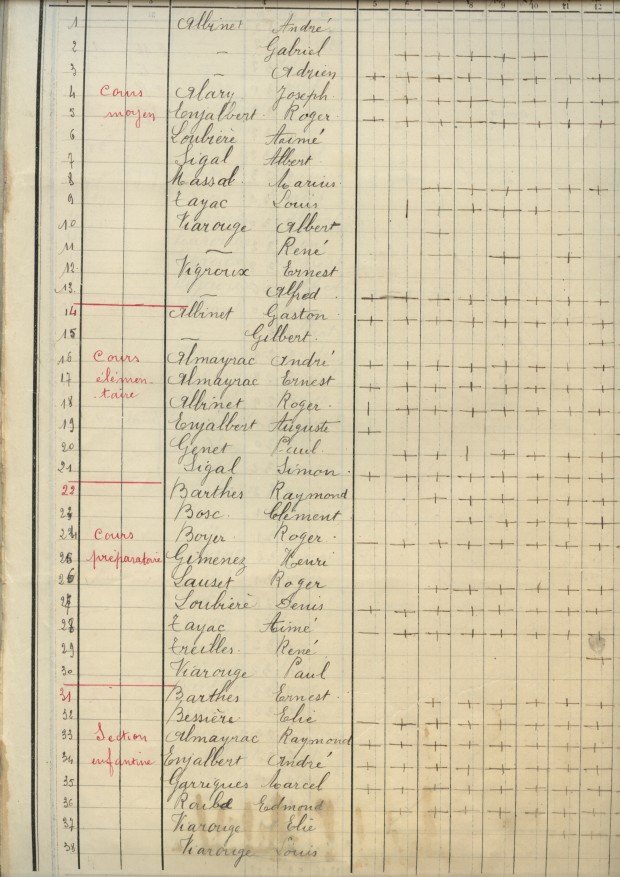 1 2 3 5 6 7 8 9 10 11 12
1 Albinet André
2 — Gabriel
3 — Adrien
4 Cours Alary Joseph
5 moyen Enjalbert Roger
6 Loubière Aimé
7 Sigal Albert
8 Massal Marius
9 Tayac Louis
10 Viarouge Albert
11 — René
12 Vigroux Ernest
13 — Alfred
14 Albinet Gaston
15 — Gilbert
16 Cours Almayrac André
17 élémen- Almayrac Ernest
18 -taire Albinet Roger
19 Enjalbert Auguste
20 Genet Paul
21 Sigal Simon
22 Barthes Raymond
23 Bosc Clément
24 Cours Boyer Roger
25 préparatoire Gimenez Henri
26 Lauset Roger
27 Loubière Denis
28 Tayac Aimé
29 Treilles René
30 Viarouge Paul
31 Barthes Ernest
32 Bessière Elie
33 Section Almayrac Raymond
34 enfantine Enjalbert André
35 Garrigues Marcel
36 Edmond
37 Viarouge Elie
38 Viarouge Louis